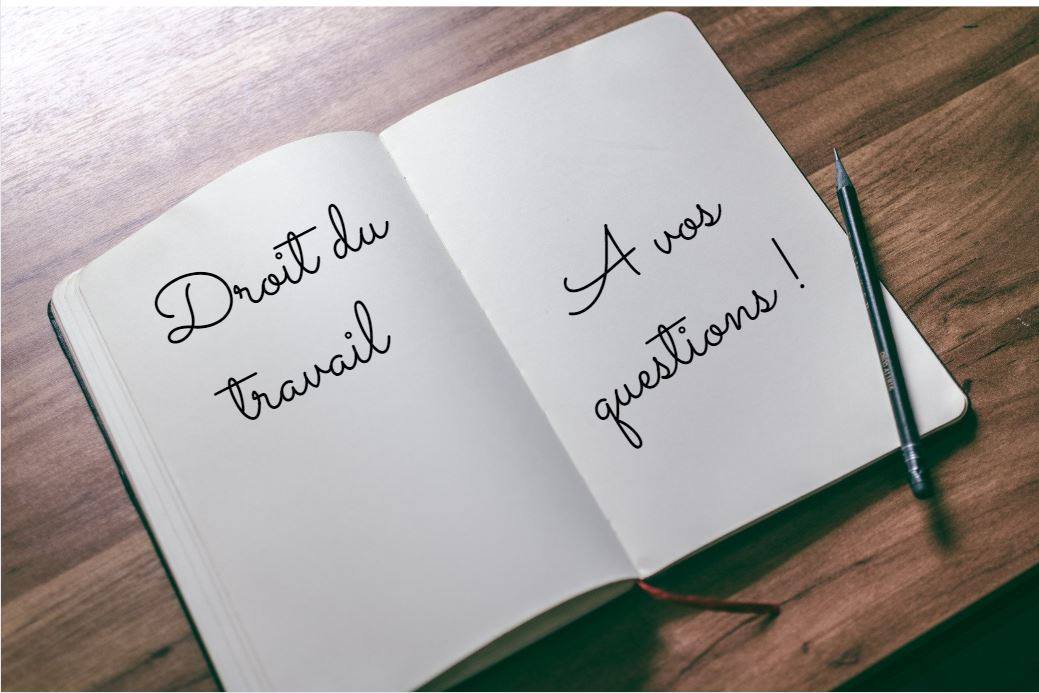 Droit du
travail
A vos
questions !